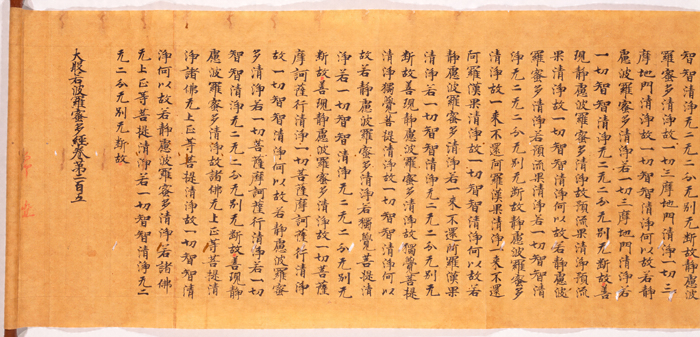 智智清淨无二无二分无別无斷故靜慮波
羅蜜多清淨故一切三摩地門清淨一切三
摩地門清淨故一切智智清淨何以故若靜
慮波羅蜜多清淨若一切三摩地門清淨若
一切智智清淨无二无二分无別无斷故善
現靜慮波羅蜜多清淨故預流果清淨預流
果清淨故一切智智清淨何以故若靜慮波
羅蜜多清淨若預流果清淨若一切智智清
淨无二无二分无別无斷故靜慮波羅蜜多
清淨故一來不還阿羅漢果清淨一來不還
阿羅漢果清淨故一切智智清淨何以故若
靜慮波羅蜜多清淨若一來不還阿羅漢果
清淨若一切智智清淨无二无二分无別无
斷故善現靜慮波羅蜜多清淨故獨覺菩提
清淨獨覺菩提清淨故一切智智清淨何以
故若靜慮波羅蜜多清淨若獨覺菩提清
淨若一切智智清淨无二无二分无別无
斷故善現靜慮波羅蜜多清淨故一切菩薩
摩訶薩行清淨一切菩薩摩訶薩行清淨
故一切智智清淨何以故若靜慮波羅蜜
多清淨若一切菩薩摩訶薩行清淨若一切
智智清淨无二无二分无別无斷故善現靜
慮波羅蜜多清淨故諸佛无上正等菩提清
淨諸佛无上正等菩提清淨故一切智智清
淨何以故若靜慮波羅蜜多清淨若諸佛
无上正等菩提清淨若一切智智清淨无二
无二分无別无斷故
大般若波羅蜜多經卷第二百五